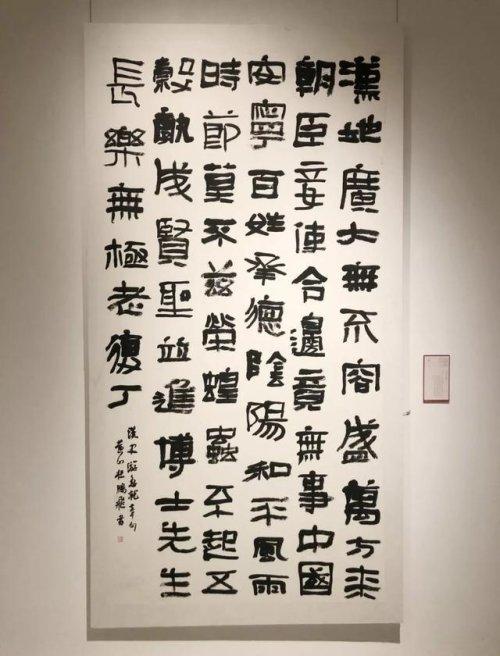 漢地廣大無不容盛萬方來
朝臣妾使令邊竟無事中國
安寧百姓承德陰陽和平風雨
時節莫不茲榮蝗蟲不起五
穀孰成賢聖並進博士先生
長樂無極老復丁
漢史游急就章句
杜鵬飛書